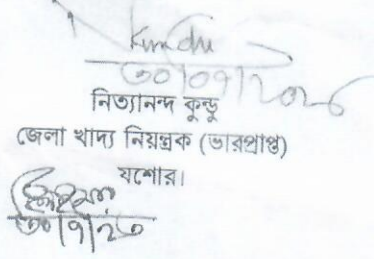 Kundu
৩০/০৭/২০২৬
নিত্যানন্দ কুন্ডু
জেলা খাদ্য নিয়ন্ত্রক (ভারপ্রাপ্ত)
যশোর।